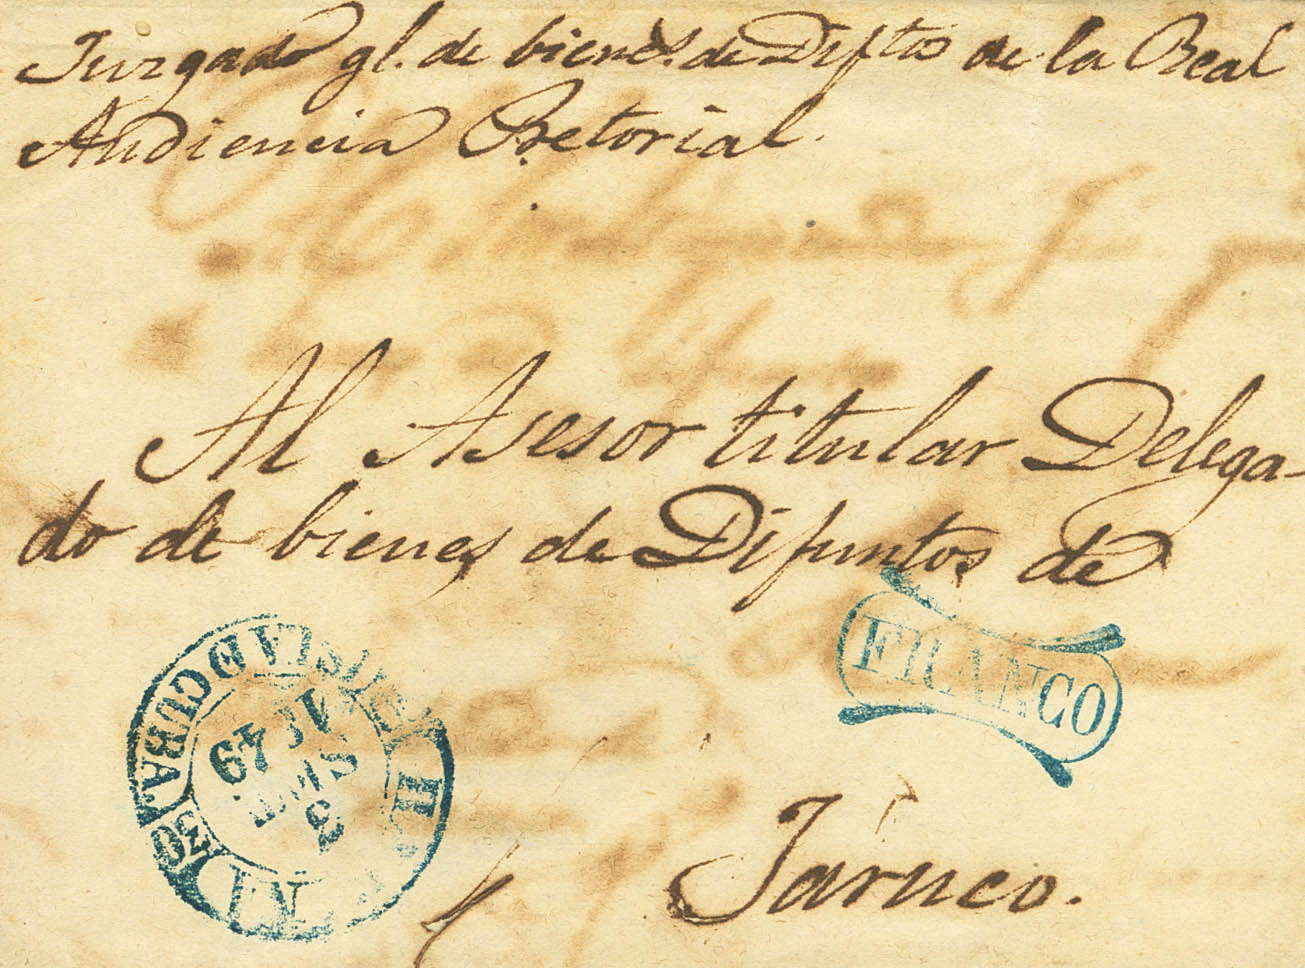 Juzgado gl. de bienes. de Diftos de la Real
Audiencia Pretorial.
Al Asesor titular Delega-
do de bienes de Difuntos de
FRANCO
ISLA D CUBA
49
30
Jaruco.